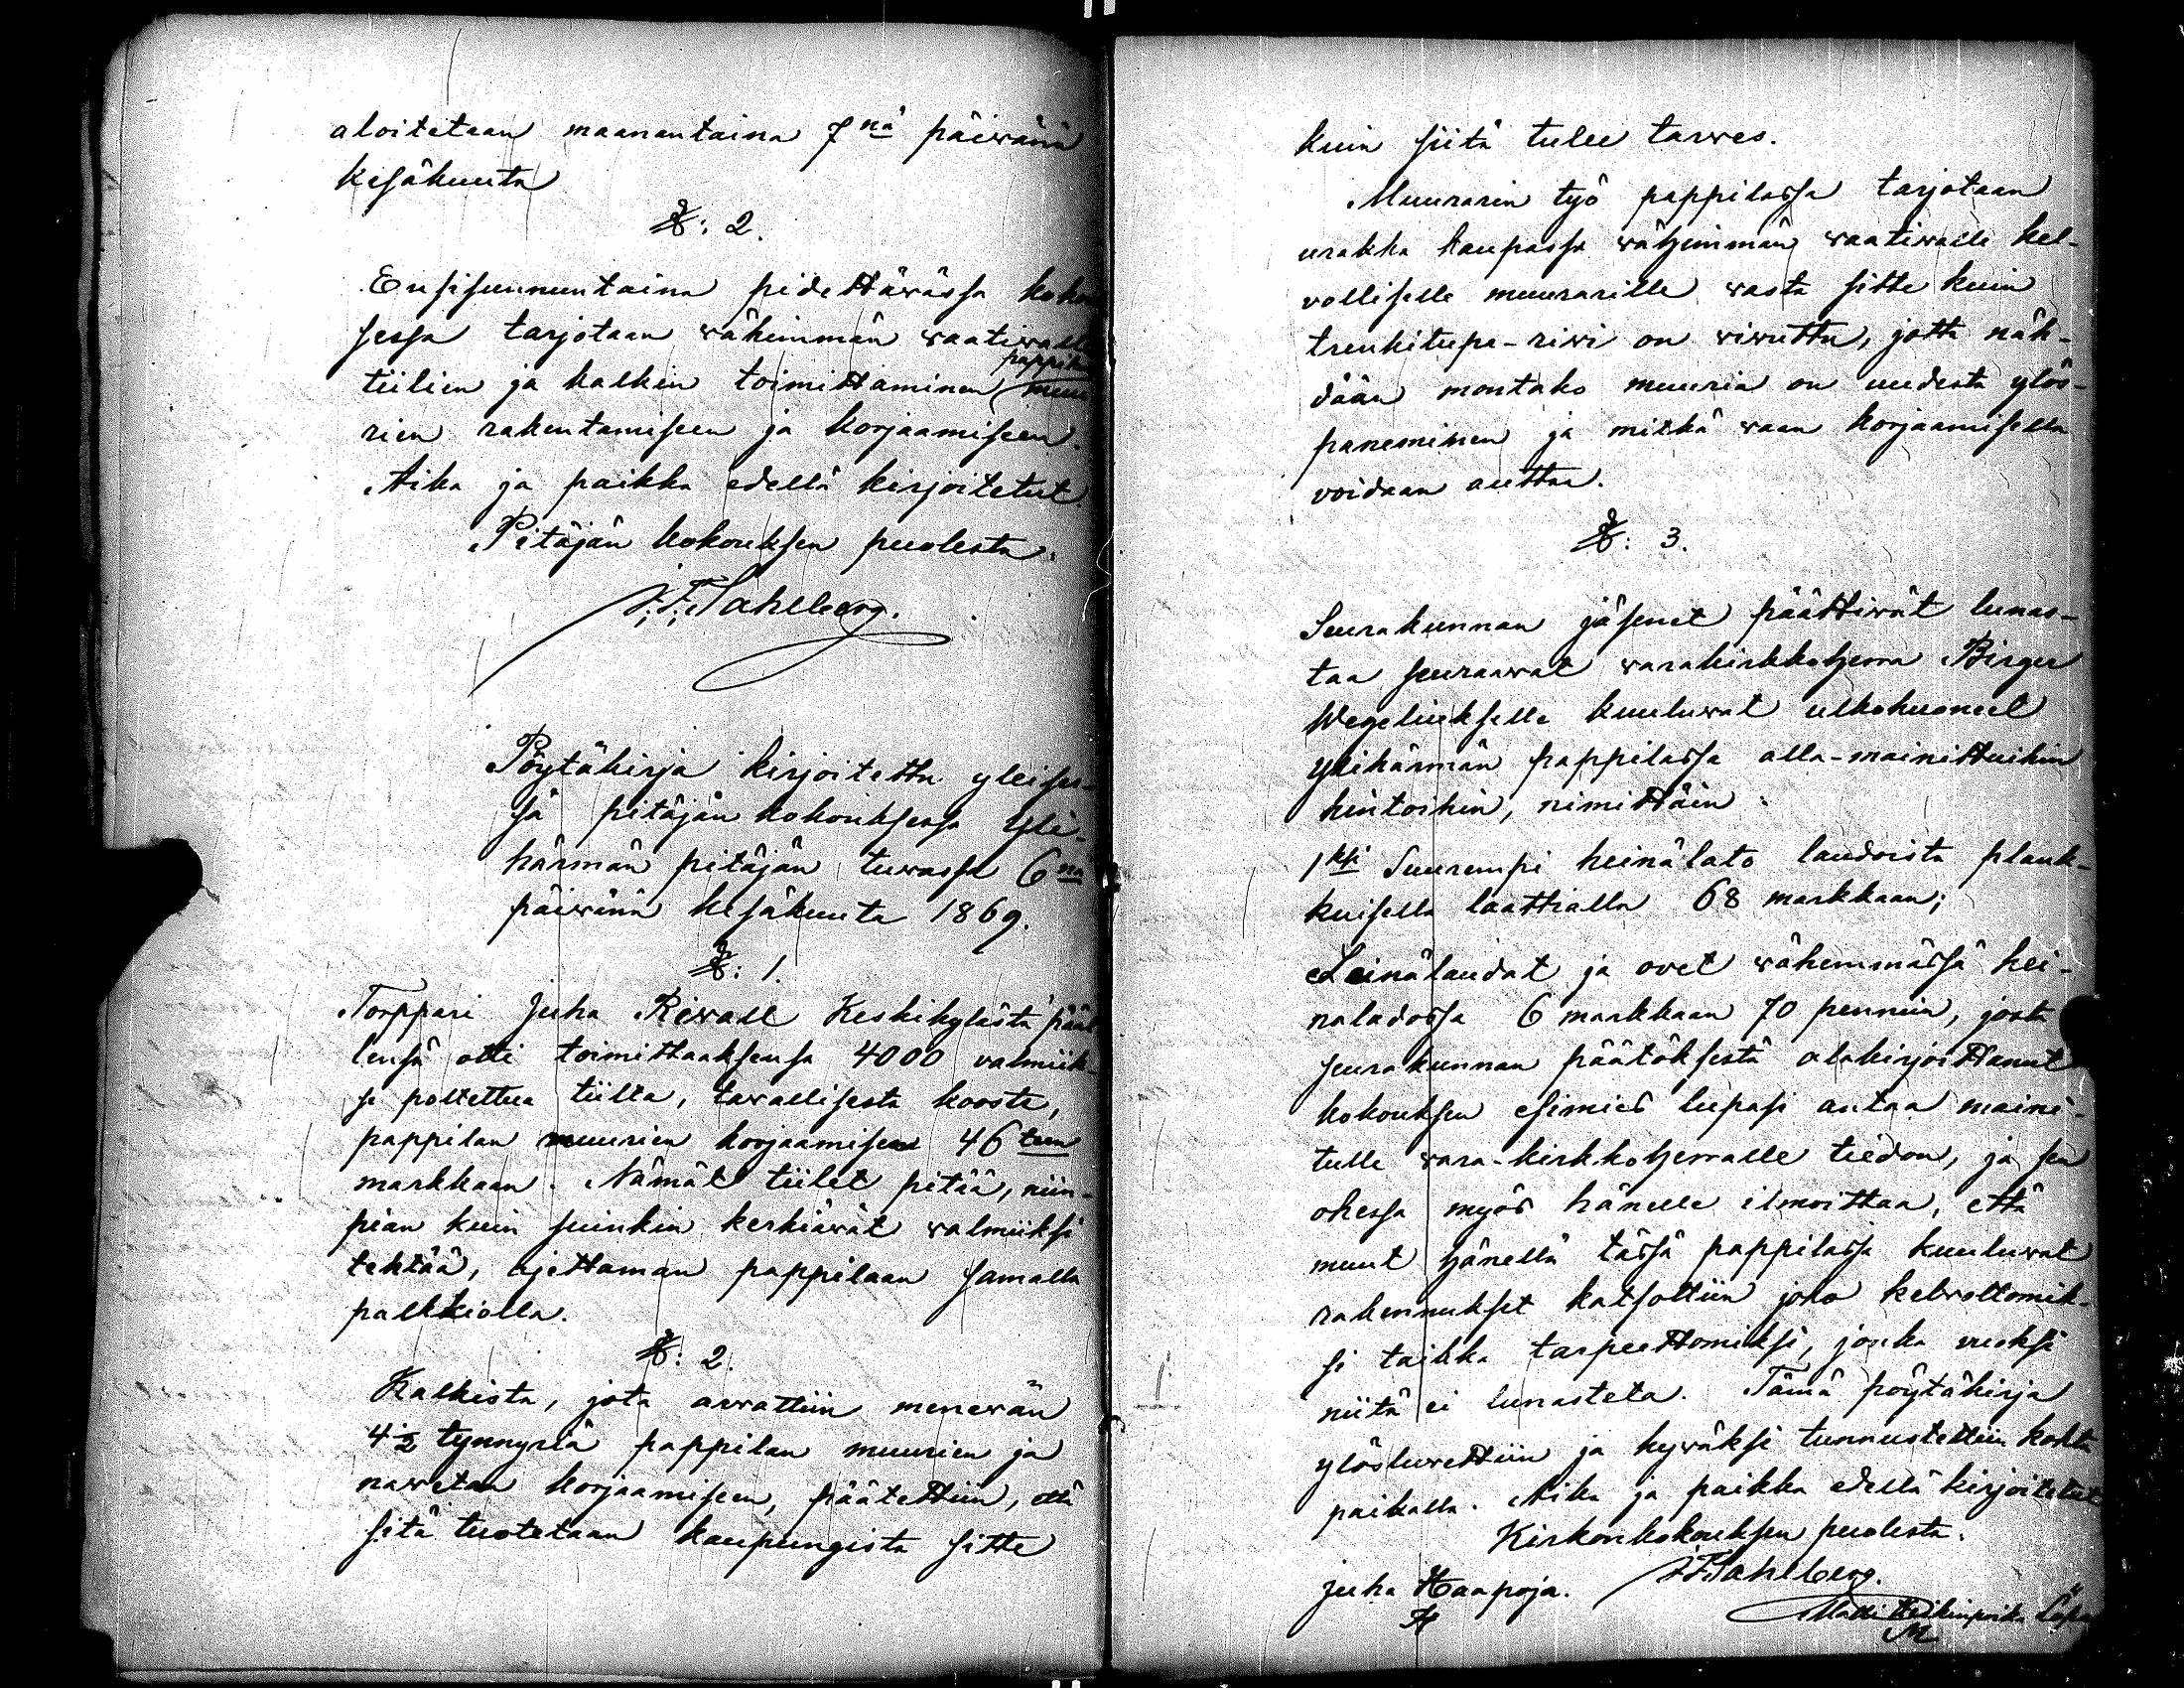 aloitetaan maanantaina 7nä päiwänä
kesäkuuta
§: 2.
Ensisunnuntaina pidettäwässä koko
sessa tarjotaan wähimmän waatiwalle
pappilan
tiilien ja kalkin toimittaminen muu
rien rakentamiseen ja korjaamiseen.
Aika ja paikka edellä kirjoitetut.
Pitäjän kokouksen puolesta:
J. F. Sahlberg.
Pöytäkirja kirjoitettu yleises-
sä pitäjän kokouksessa Yli-
härmän pitäjän tuwassa 6na
päiwänä kesäkuuta 1869.
§: 1.
Torppari Juha Riwall Keskikylästä pääl
lensä otti toimittaaksensa 4000 valmiik-
si poltettua tiiltä, tawallisesta koosta,
pappilan muurien korjaamiseen 46 teen
markkaan. Nämät tiilet pitää, niin-
pian kuin suinkin kerkiäwät walmiiksi
tehtää, ajettaman pappilaan samalla
palkkiolla.
§: 2.
Kalkista, jota arwattiin menewän
4½ tynnyriä pappilan muurien ja
nawetan korjaamiseen, päätettiin, että
sitä tuotetaan kaupungista sitte
kuin siitä tulee tarwes.
Muurarin työ pappilassa tarjotaan
urakka kaupassa wähimmän waatiwalle kel-
volliselle muurarille wasta sitte kuin
trenkitupa-riwi on siwuttu, jotta näh-
dään montako muuria on uudesta ylös-
paneminen ja mitkä waan korjaamisella
voidaan auttaa.
§: 3.
Seurakunnan jäsenet päättiwät lunas-
taa seuraawat warakirkkoherra Birger
Wegeliukselle kuuluwat ulkohuoneet
Ylihärmän pappilassa alla-mainittuihin
hintoihin, nimittäin:
1ksi Suurempi heinälato laudoista plank-
kuisella laattialla 68 markkaan;
Seinälaudat ja ovet wähemmässä hei-
näladossa 6 markkaan 70 penniin, josta
seurakunnan päätöksestä alakirjoittanut
kokouksen esimies lupasi antaa maini-
tulle wara-kirkkoherralle tiedon, ja sen
ohessa myös hänelle ilmoittaa, että
muut hänellä tässä pappilassa kuuluwat
rakennukset katsottiin joko kelwottomik-
si taikka tarpeettomiksi, jonka vuoksi
niitä ei lunasteta. Tämä pöytäkirja
ylösluwettiin ja hywäksi tunnustettiin kohta
paikalla. Aika ja paikka edellä kirjoitetut
Kirkonkokouksen puolesta:
J. F. Sahlberg.
Juha Haapoja.
H
Matti Heikinpoika
M